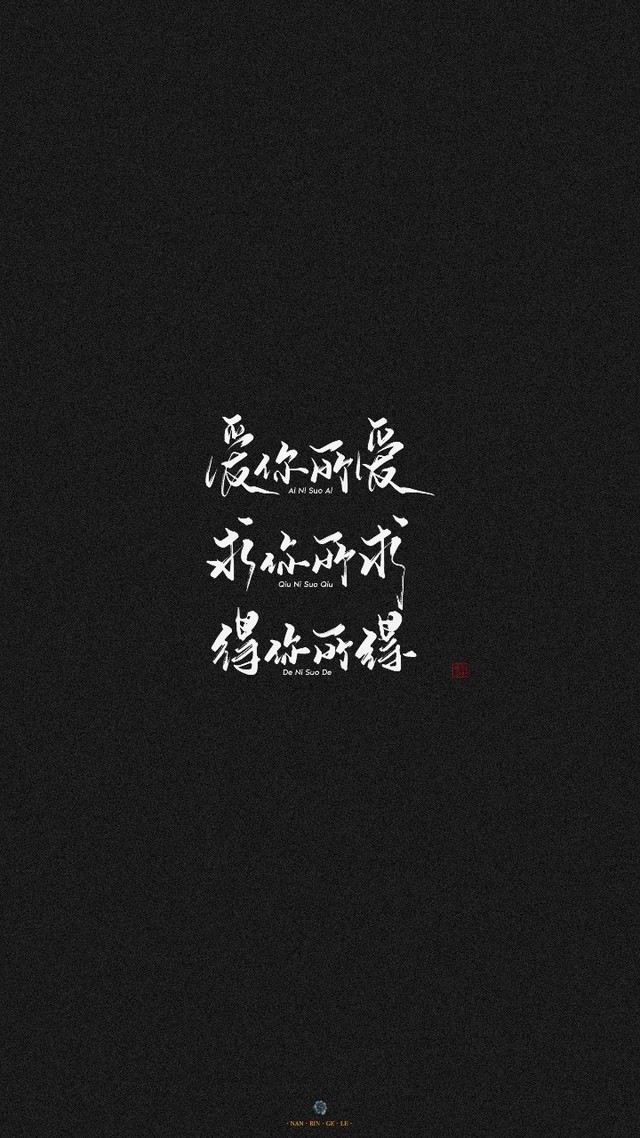 爱你所爱
Ai Ni Suo Ai
求你所求
Qiu Ni Suo Qiu
得你所得
De Ni Suo De
· NAN · RIN · GE · LE ·